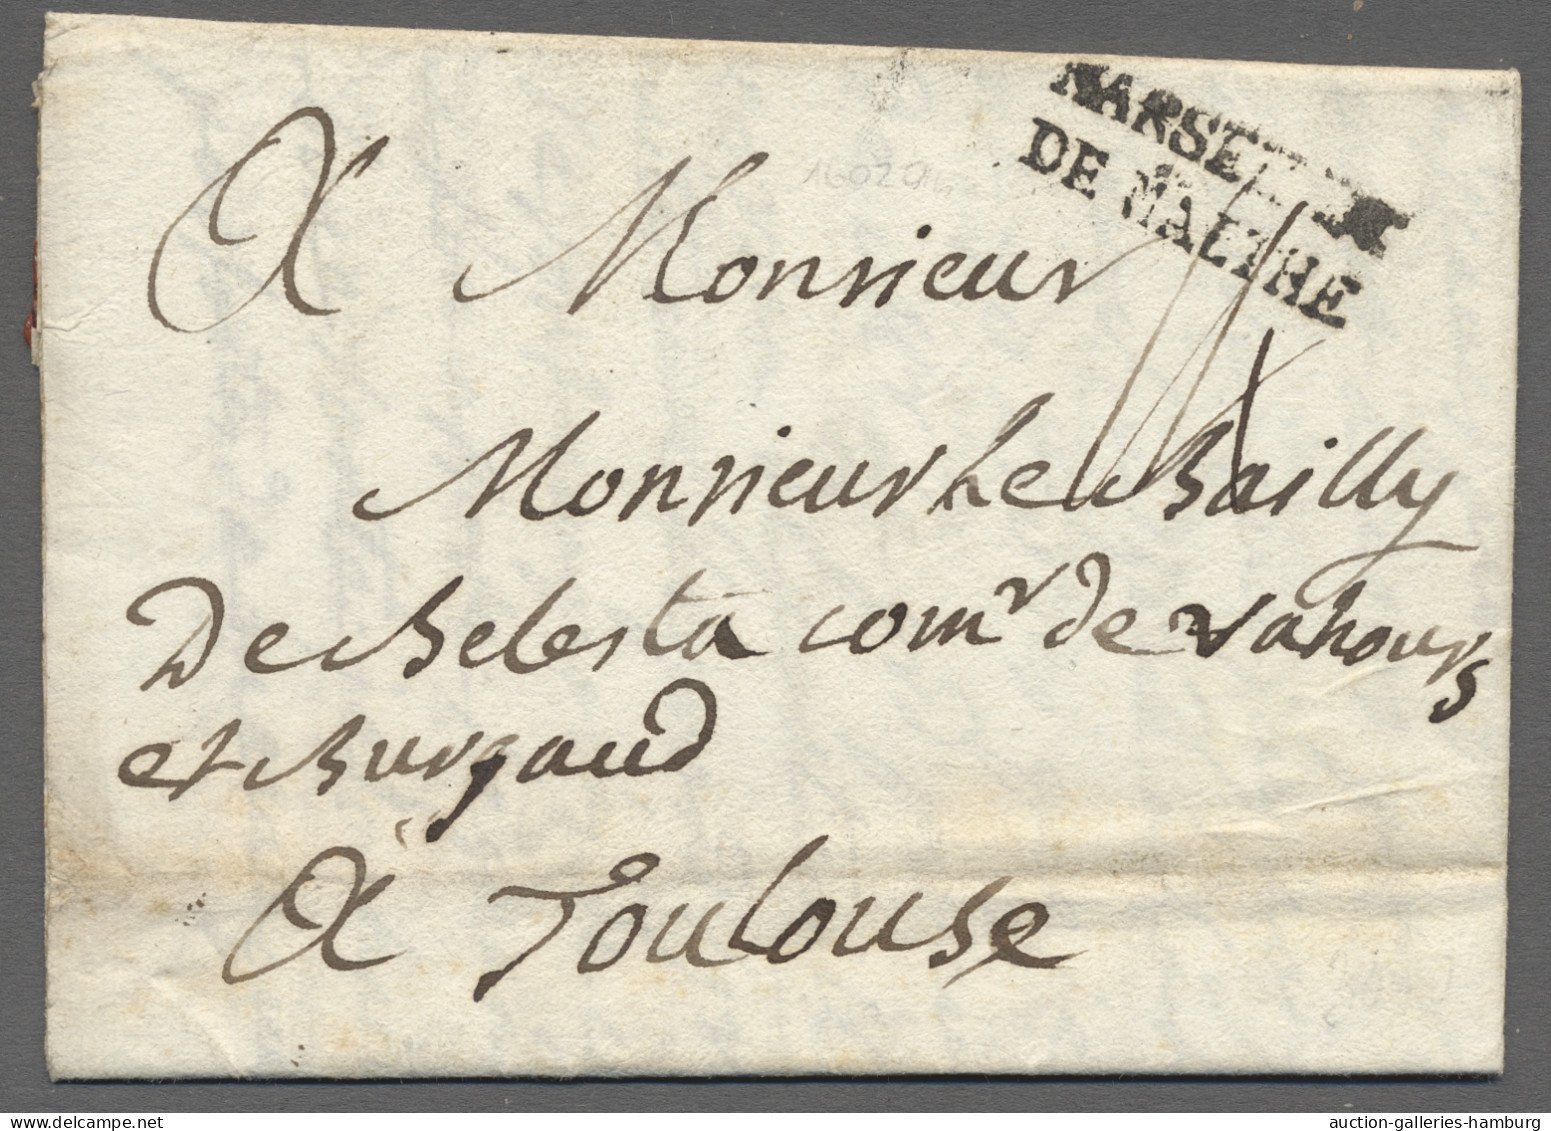 MARSEILLE
DE MALTHE
A Monsieur
Monsieur Le Bailly
De Belesta com^r de vahours
et Burgaud
A Toulouse
auction-galleries-hamburg